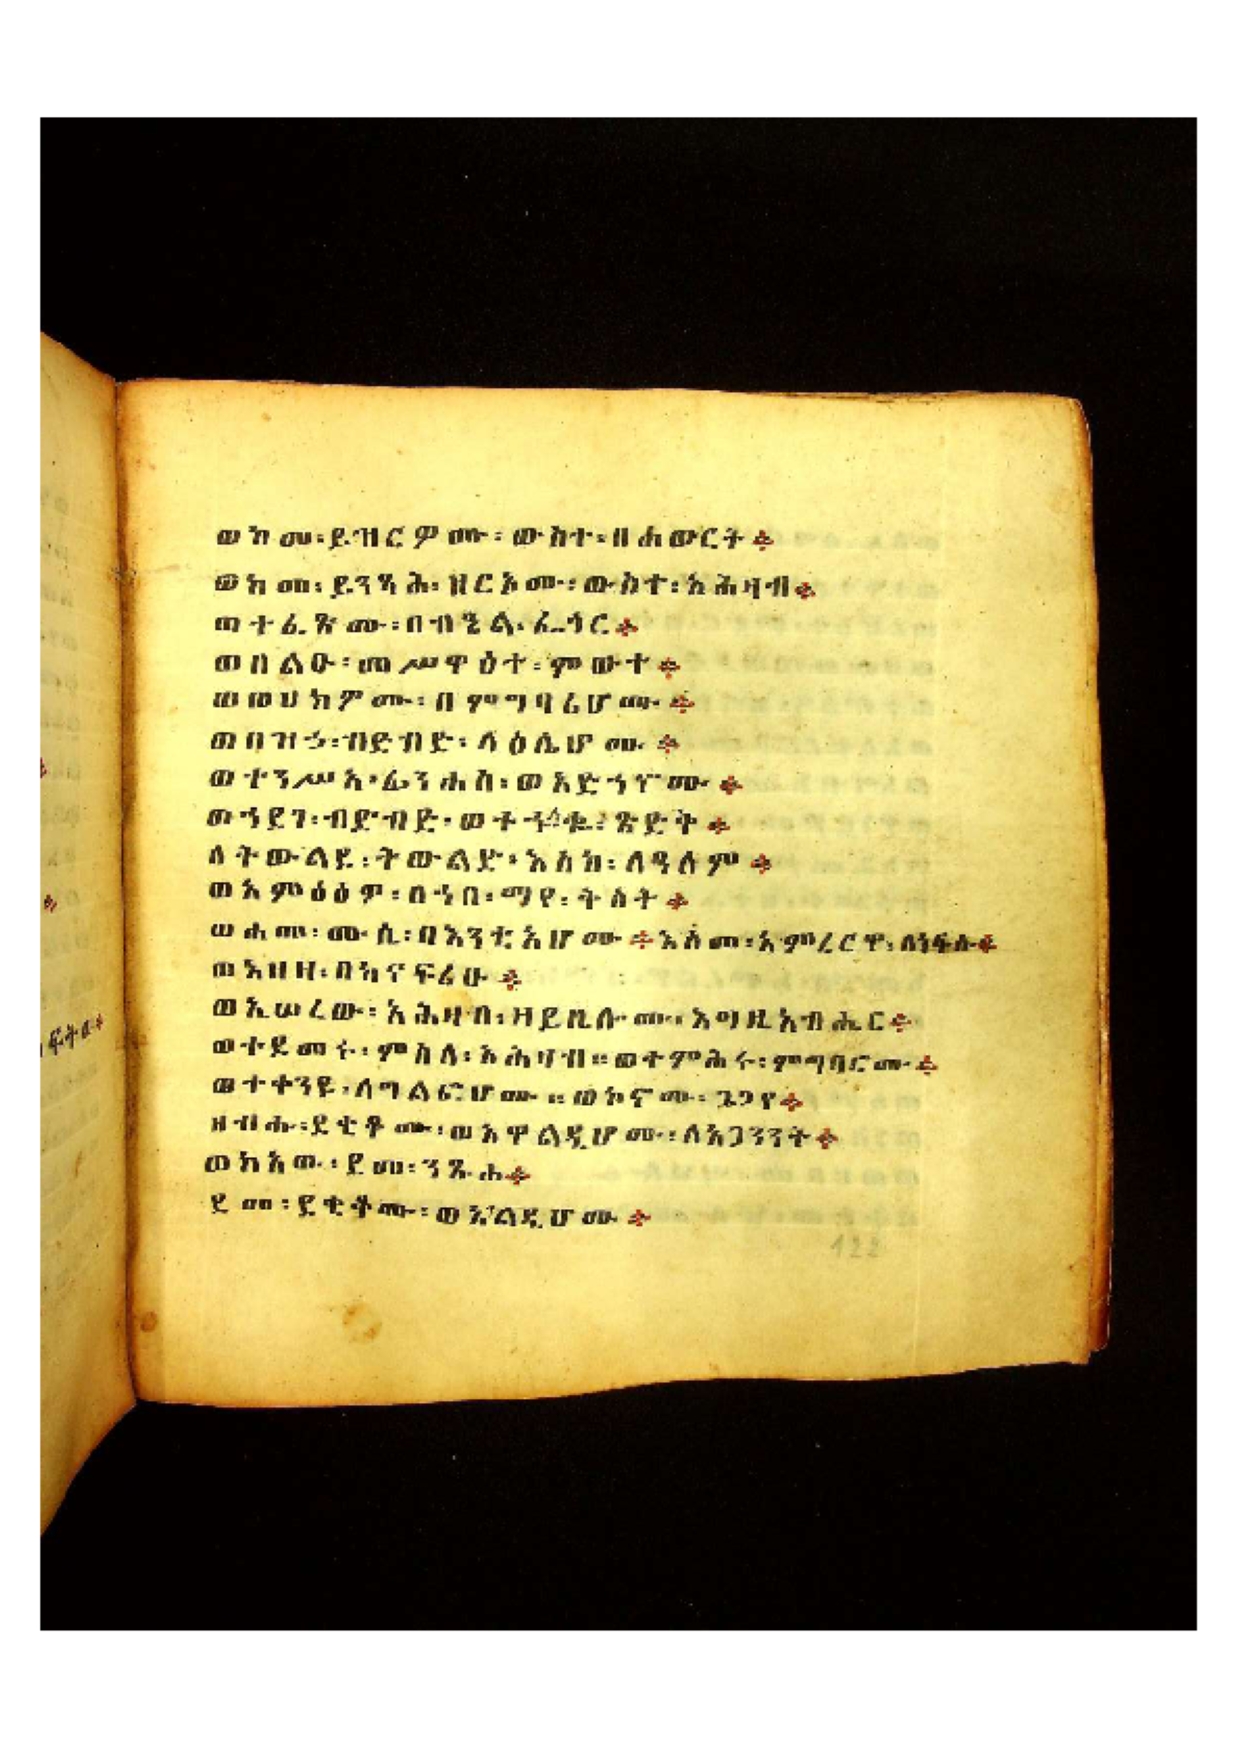 ወከመ፡ይዝርዎሙ፡ውስተ፡በሐውርት።
ወከመ፡ይንጻሕ፡ዘርኦሙ፡ውስተ፡አሕዛብ።
ወተፈጽሙ፡በብዔል፡ፌጎር።
ወበልዑ፡መሥዋዕተ፡ምውተ።
ወወህክዎሙ፡በምግባሪሆሙ።
ወበዝኃ፡ብድብድ፡ላዕሌሆሙ።
ወተንሥአ፡ፊንሐስ፡ወአድኅኖሙ።
ወኀደገ፡ብድብድ፡ወተኈለቈ፡ጽድቅ።
ለትውልደ፡ትውልድ፡እስከ፡ለዓለም።
ወአምዕዕዎ፡በኀበ፡ማየ፡ትስት።
ወሐመ፡ሙሴ፡በእንቲአሆሙ። እስመ፡አምረርዋ፡ለነፍሱ።
ወአዘዘ፡በከናፍሪሁ።
ወኢሠረው፡አሕዛበ፡ዘይቤሎሙ፡እግዚአብሔር።
ወተደመሩ፡ምስለ፡አሕዛብ። ወተምሕሩ፡ምግባሮሙ።
ወተቀንዩ፡ለግልፎሆሙ። ወኮኖሙ፡ጌጋየ።
ዘብሑ፡ደቂቆሙ፡ወአዋልዲሆሙ፡ለአጋንንት።
ወከአው፡ደመ፡ንጹሐ።
ደመ፡ደቂቆሙ፡ወአዋልዲሆሙ።
122